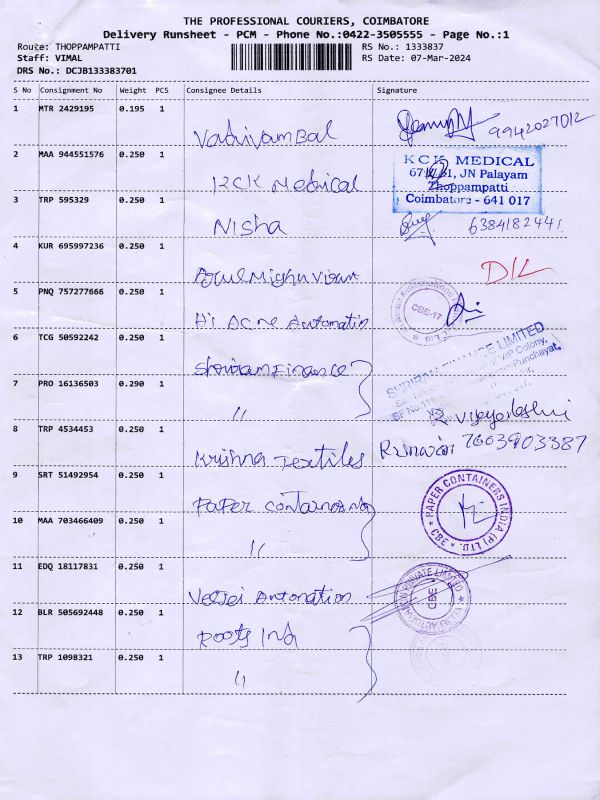 THE PROFESSIONAL COURIERS, COIMBATORE
Delivery Runsheet - PCM - Phone No.:0422-3505555 - Page No.:1
Route: THOPPAMPATTI RS No.: 1333837
Staff: VIMAL RS Date: 07-Mar-2024
DRS No.: DCJB133383701
S No Consignment No Weight PCS Consignee Details Signature
1 MTR 2429195 0.195 1
Vadivambal 9942027012
2 MAA 944551576 0.250 1
KCK Medical
KCK MEDICAL
JN Palayam
Thoppampatti
Coimbatore - 641 017
3 TRP 595329 0.250 1
Nisha 6384182441
4 KUR 695997236 0.250 1
D/L
5 PNQ 757277666 0.250 1
Hi Acme Automatin
CBE-17
6 TCG 50592242 0.250 1
Shriram Finance
SHRIRAM FINANCE LIMITED
VIP Colony,
Panchayat,
7 PRO 16136503 0.290 1
〃 R Vijayalashmi
8 TRP 4534453 0.250 1
Krishna Textiles 7603903387
9 SRT 51492954 0.250 1
Paper Containers
PAPER CONTAINERS INDIA (P) LTD. CBE
10 MAA 703466409 0.250 1
〃
11 EDQ 18117831 0.250 1
Automation
PRIVATE LIMITED
CBE
12 BLR 505692448 0.250 1
Roots Ind
13 TRP 1098321 0.250 1
〃